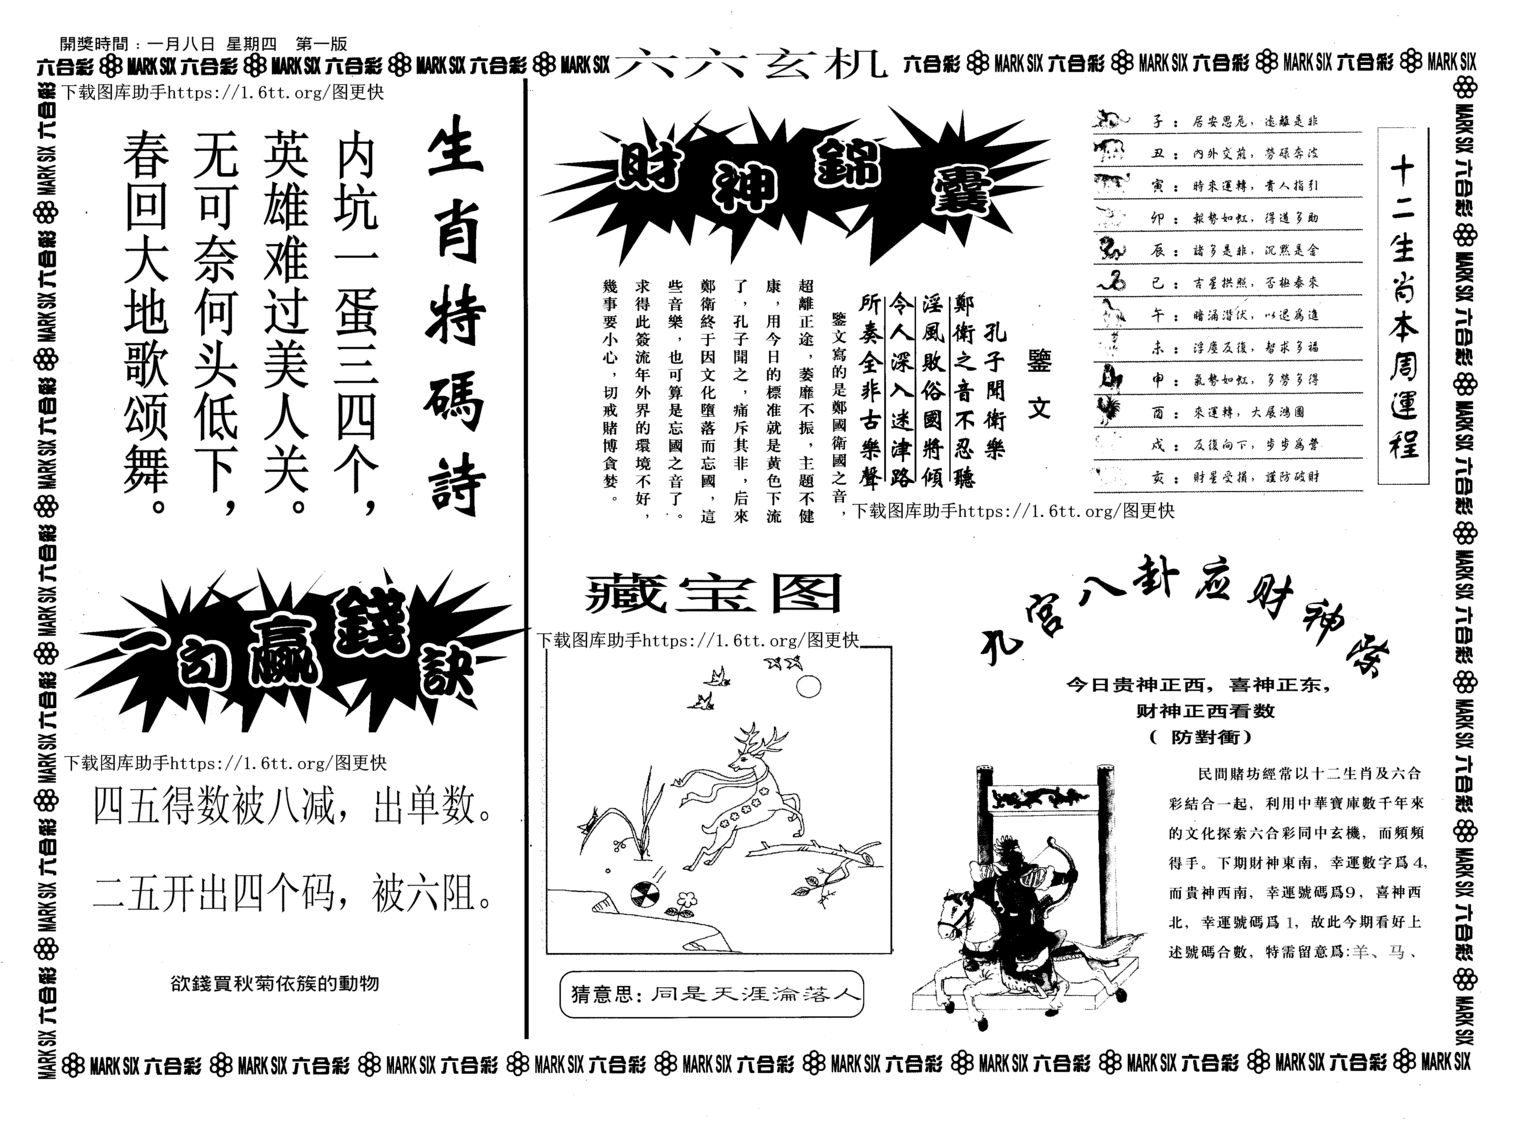 開獎時間：一月八日 星期四 第一版
六六玄机
六合彩 MARK SIX 六合彩 MARK SIX 六合彩 MARK SIX 六合彩 MARK SIX
六合彩 MARK SIX 六合彩 MARK SIX 六合彩 MARK SIX 六合彩 MARK SIX
下载图库助手https://1.6tt.org/图更快
生肖特碼詩
内坑一蛋三四个，
英雄难过美人关。
无可奈何头低下，
春回大地歌颂舞。
一句贏錢訣
下载图库助手https://1.6tt.org/图更快
四五得数被八减，出单数。
二五开出四个码，被六阻。
欲錢買秋菊依簇的動物
財神錦囊
鑒文
孔子聞衛樂
鄭衛之音不忍聽
淫風敗俗國將傾
令人深入迷津路
所奏全非古樂聲
鑒文寫的是鄭國衛國之音，
超離正途，萎靡不振，主題不健
康，用今日的標准就是黄色下流
了，孔子聞之，痛斥其非，后來
鄭衛終于因文化墮落而忘國，這
些音樂，也可算是忘國之音了。
求得此簽流年外界的環境不好，
幾事要小心，切戒賭博貪婪。
下载图库助手https://1.6tt.org/图更快
十二生肖本周運程
子：居安思危，遠離是非
丑：内外交煎，勞碌奔波
寅：時來運轉，貴人指引
卯：報勢如虹，得道多助
辰：諸多是非，沉黙是金
巳：吉星拱照，否極泰來
午：暗涌潜伏，以退爲進
未：浮塵反復，智求多福
申：氣勢如虹，多勞多得
酉：來運轉，大展鴻圖
戌：反復向下，步步爲營
亥：財星受損，謹防破財
藏宝图
下载图库助手https://1.6tt.org/图更快
猜意思：同是天涯淪落人
九宫八卦应财神策
今日贵神正西，喜神正东，
财神正西看数
（ 防對衝）
民間賭坊經常以十二生肖及六合
彩結合一起，利用中華寶庫數千年來
的文化探索六合彩同中玄機，而頻頻
得手。下期財神東南，幸運數字爲 4，
而貴神西南，幸運號碼爲9，喜神西
北，幸運號碼爲 1，故此今期看好上
述號碼合數，特需留意爲:羊、马 、
MARK SIX 六合彩 MARK SIX 六合彩 MARK SIX 六合彩 MARK SIX 六合彩 MARK SIX 六合彩 MARK SIX 六合彩 MARK SIX 六合彩 MARK SIX 六合彩 MARK SIX 六合彩 MARK SIX